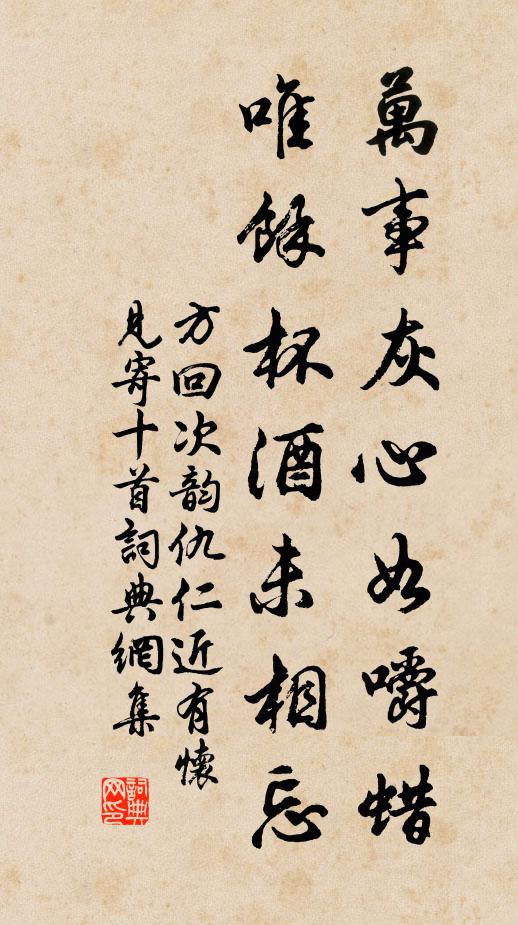 萬事灰心如嚼蜡
唯餘杯酒未相忘
方回次韵仇仁近有懷
見寄十首詞典網集
詞典
网印